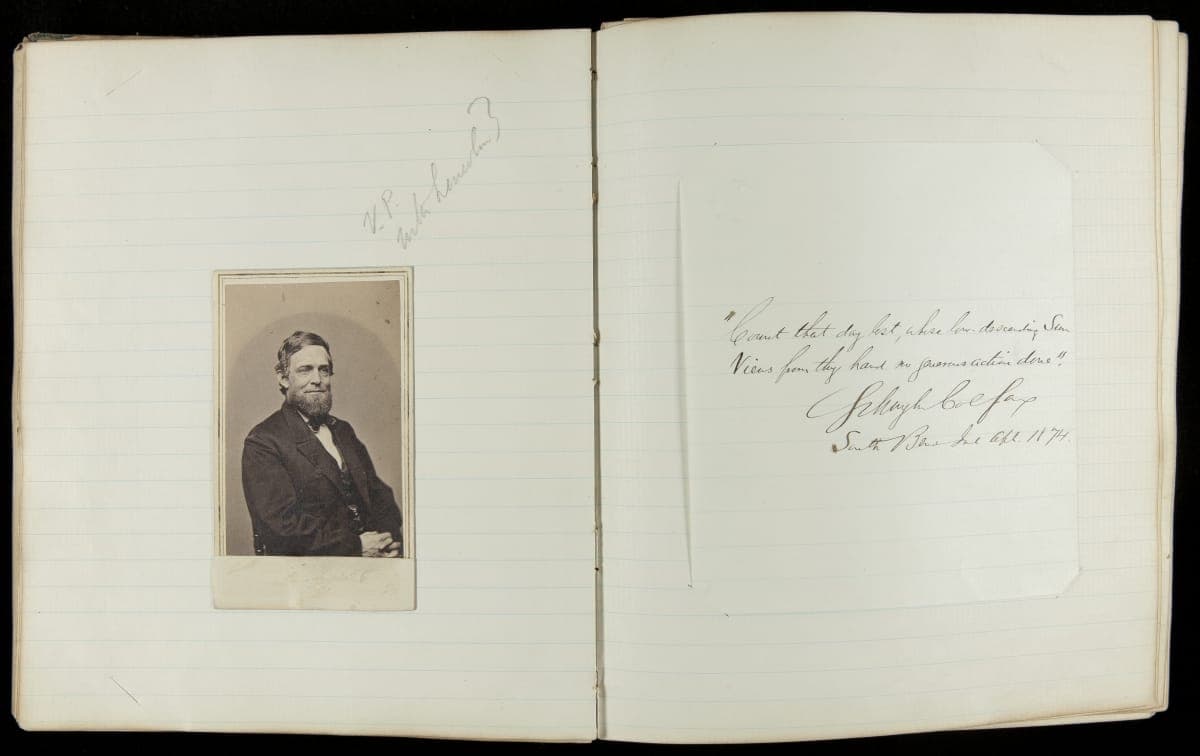 V.P.
with Lincoln?
"Count that day lost, whose low-descending Sun
Views from thy hand no generous action done".
Schuyler Colfax
South Bend Ind Apl. 1874.